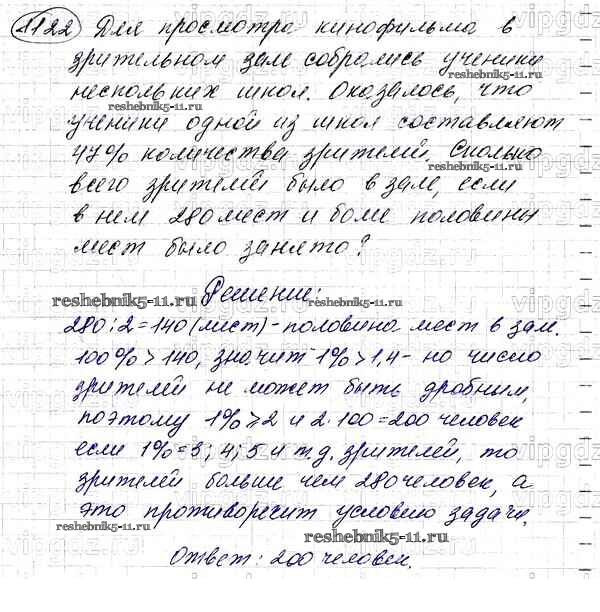 1122 Для просмотра кинофильма в
зрительном зале собрались ученики
нескольких школ. Оказалось, что
reshebnik5-11.ru
ученики одной из школ составляют
47% количества зрителей. Сколько
reshebnik5-11.ru
всего зрителей было в зале, если
в нем 280 мест и более половины
мест было занято?
Решение:
reshebnik5-11.ru
reshebnik5-11.ru
280:2=140 (мест) - половина мест в зал.
100% > 140, значит 1% > 1,4 - но число
зрителей не может быть дробным,
поэтому 1% ≥ 2 и 2·100=200 человек
если 1% = 3; 4; 5 и т.д. зрителей, то
reshebnik5-11.ru
зрителей больше чем 280 человек, а
это противоречит условию задачи.
reshebnik5-11.ru
reshebnik5-11.ru
Ответ: 200 человек.